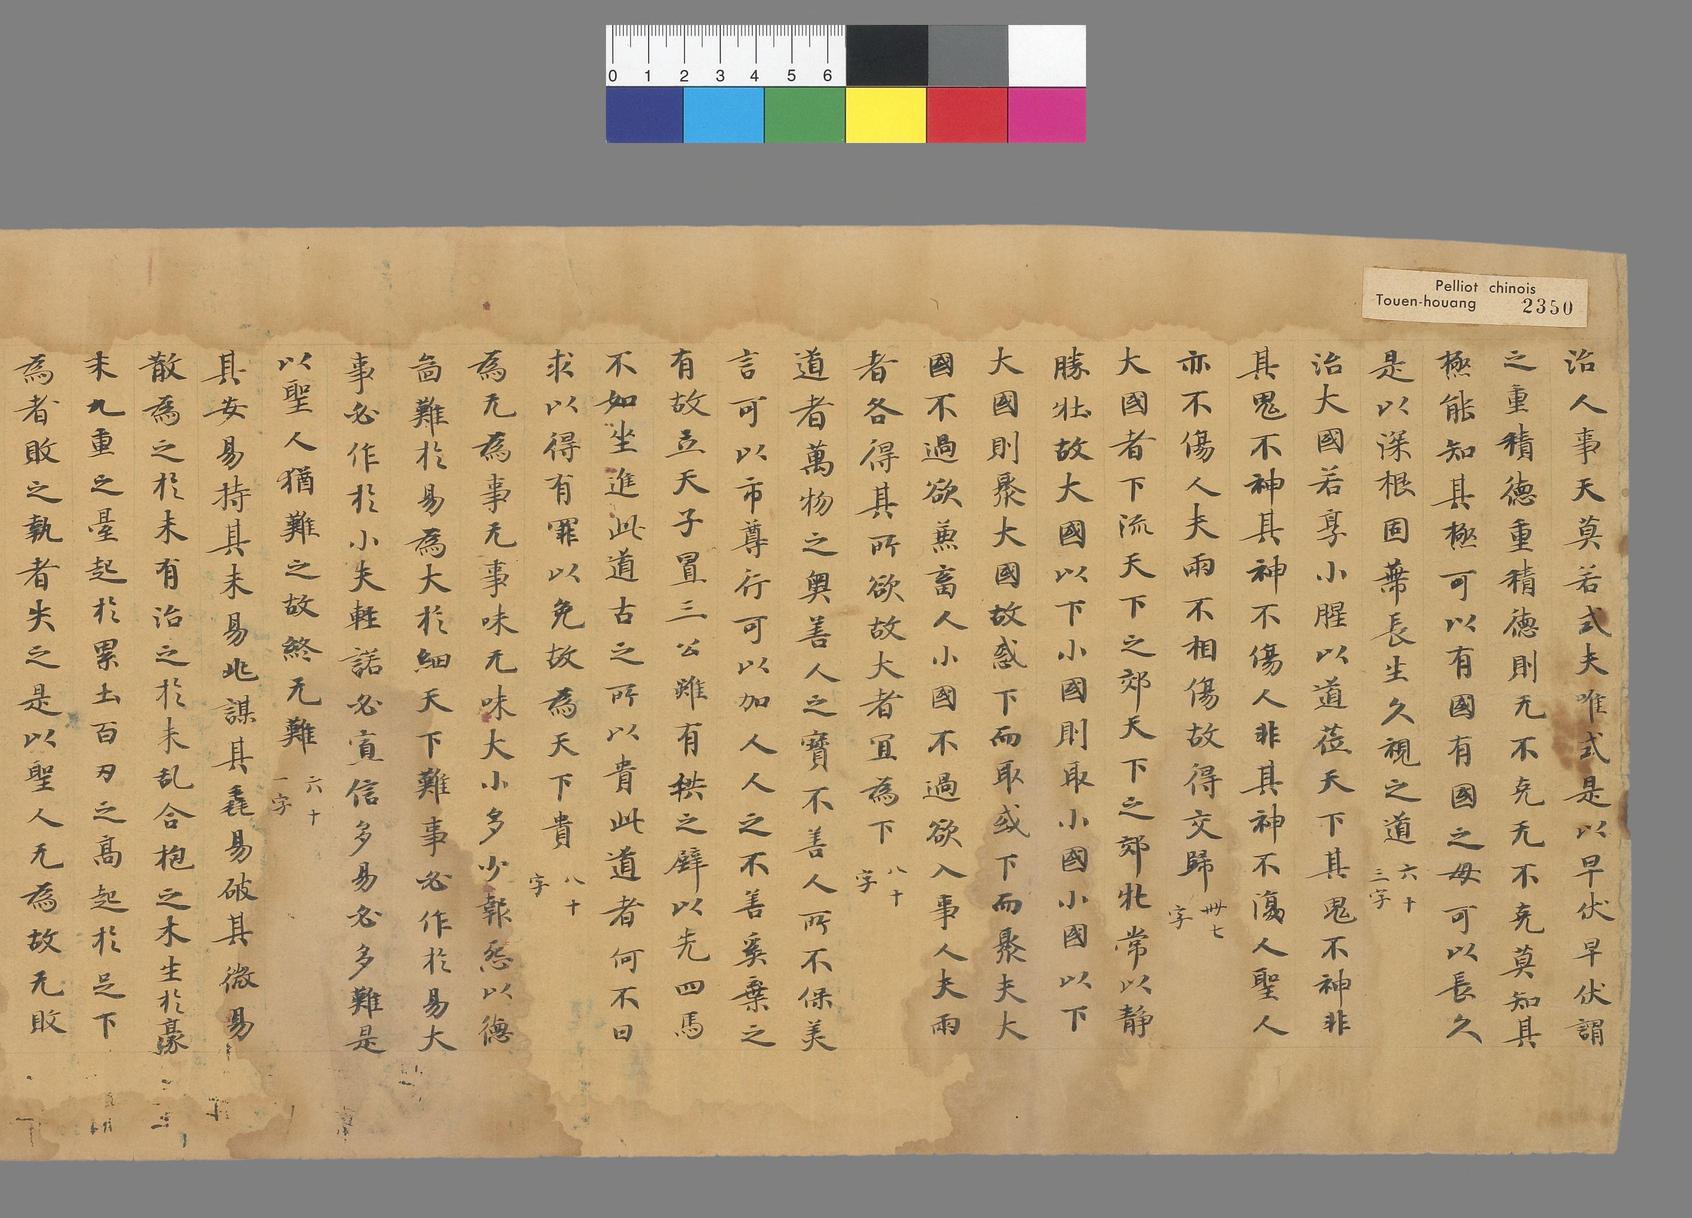 0 1 2 3 4 5 6
Pelliot chinois
Touen-houang 2350
治人事天莫若式夫唯式是以早伏早伏謂
之重積德重積德則无不克无不克莫知其
極能知其極可以有國有國之母可以長久
是以深根固蔕長生久視之道六十三字
治大國若享小腥以道莅天下其鬼不神非
其鬼不神其神不傷人非其神不傷人聖人
亦不傷人夫兩不相傷故得交歸卌七字
大國者下流天下之郊天下之郊牝常以靜
勝牡故大國以下小國則取小國小國以下
大國則聚大國故或下而取或下而聚夫大
國不過欲兼畜人小國不過欲入事人夫兩
者各得其所欲故大者冝為下八十字
道者萬物之奥善人之寳不善人所不保美
言可以市尊行可以加人人之不善奚棄之
有故立天子置三公雖有拱之璧以先四馬
不如坐進此道古之所以貴此道者何不曰
求以得有罪以免故為天下貴八十字
為无為事无事味无味大小多少報怨以德
啚難於易為大於細天下難事必作於易大
事必作於小夫輕諾必寡信多易必多難是
以聖人猶難之故終无難六十一字
其安易持其未易兆謀其毳易破其微易
散為之於未有治之於未乱合抱之木生於豪
末九重之臺起於累土百刃之高起於足下
為者敗之執者失之是以聖人无為故无敗